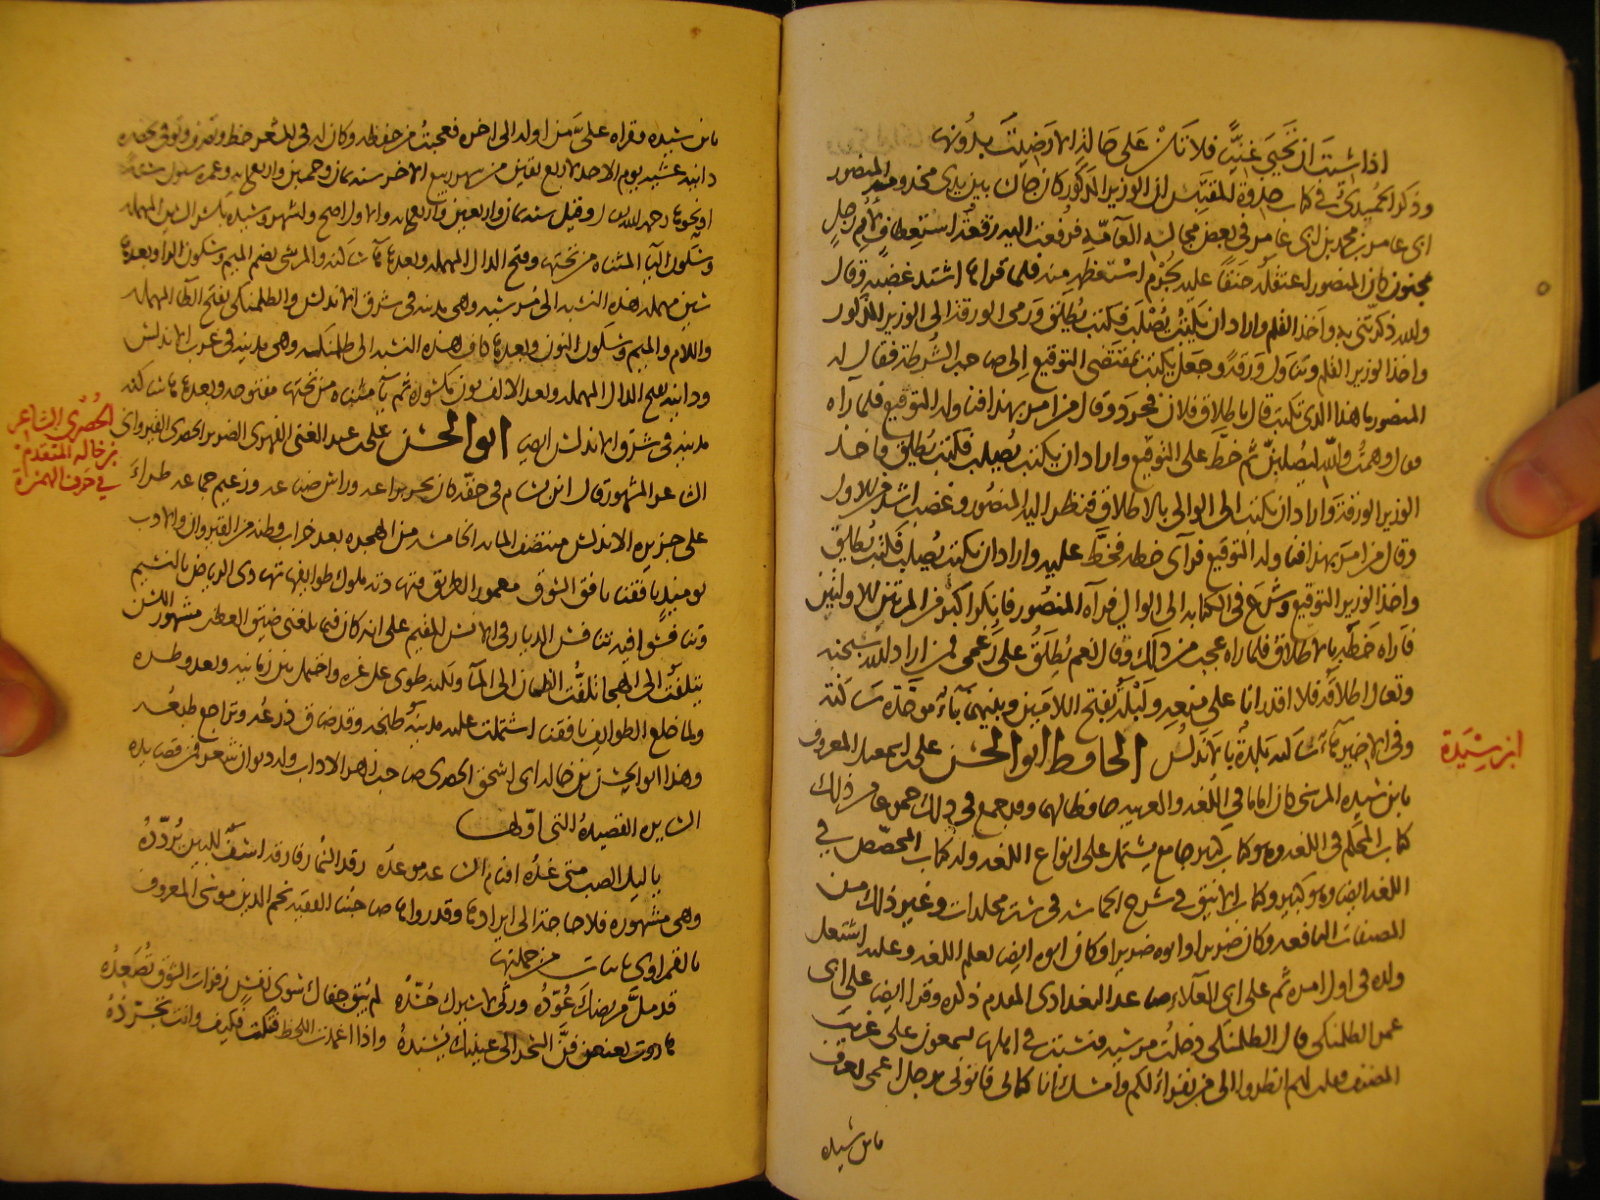 اذا شئت ان تحيى غنيا فلا تكن على حالة الا رضيت بدونها
وذكر الحميدي في كتاب جذوة المقتبس ان الوزير المذكور كان جالسا بين يدي مخدومه المنصور
ابي عامر بن محمد بن ابي عامر في بعض مجالسه العامة فرفعت اليه رقعة استعطاف لام رجل
مجنون كان المنصور اعتقله حنقا عليه لجرم استعظمه منه فلما قراها اشتد غضبه وقال
والله ذكرتني به واخذ القلم واراد ان يكتب يصلب فكتب يطلق ورمى الورقة الى الوزير المذكور
واخذ الوزير القلم وتناول ورقة وجعل يكتب بمقتضى التوقيع الى صاحب الشرطة فقال له
المنصور ما هذا الذي تكتب قال باطلاق فلان فحرد وقال من امر بهذا فناوله التوقيع فلما رآه
قال وهمت والله ليصلبن ثم خط على التوقيع واراد ان يكتب يصلب فكتب يطلق فاخذ
الوزير الورقة واراد ان يكتب الى الوالي بالاطلاق فنظر اليه المنصور وغضب اشد من الاول
وقال من امر بهذا فناوله التوقيع فرآى خطه فخط عليه واراد ان يكتب يصلب فكتب يطلق
واخذ الوزير التوقيع وشرع في الكتابة الى الوالي فرآه المنصور فانكر اكثر من المرتين الاوليين
فاراه خطه بالاطلاق فلما راه عجب من ذلك وقال نعم يطلق على رغمي فمن اراد الله سبحانه
وتعالى اطلاقه فلا اقدر انا على منعه ولبلة بفتح اللامين وبينهما باء موحدة ساكنة
وفي الاخير هاء ساكنة بلدة بالاندلس الحافظ ابو الحسن على بن اسمعيل المعروف
بابن سيده المرسي كان اماما في اللغة والعربية حافظا لهما وقد جمع في ذلك جموعا من ذلك
كتاب المحكم في اللغة وهو كتاب كبير جامع يشتمل على انواع اللغة وله كتاب المخصص في
اللغة ايضا وهو كبير وكتاب الانيق في شرح الحماسة في ستة مجلدات وغير ذلك من
المصنفات النافعة وكان ضريرا وابوه ضريرا وكان ابوه ايضا بعلم اللغة وعليه اشتغل
ولده في اول امره ثم على ابي العلاء صاعد البغدادي المقدم ذكره وقرا ايضا على ابي
عمر الطلمنكي قال الطلمنكي دخلت مرسية فتشبث بي اهلها يسمعون على غريب
المصنف فقلت لهم انظروا الي من يقراء لكم وامسك انا كتابي فاتوني برجل اعمى يعرف
بابن سيده
ابن سيدة
بابن سيده فقراه على من اوله الى اخره فعجبت من حفظه وكان له في الشعر حظ وتصرف وتوفي بحضرة
دانية عشية يوم الاحد لاربع بقين من شهر ربيع الاخر سنة ثمان وخمسين واربعمايه وعمره ستون سنة
او نحوها رحمه الله تعالى وقيل سنة ثمان واربعين واربعمايه والاول اصح واشهر وسيده بكسر السين المهملة
وسكون اليا المثناة من تحتها وفتح الدال المهملة وبعدها هاء ساكنه والمرسي بضم الميم وسكون الرا وبعدها
سين مهملة هذه النسبة الى مرسيه وهي مدينة في شرق الاندلس والطلمنكي بفتح الطا المهملة
واللام والميم وسكون النون وبعدها كاف هذه النسبة الى طلمنكه وهي مدينة في غرب الاندلس
ودانية بفتح الدال المهملة وبعد الالف نون مكسورة ثم يا مثناه من تحتها مفتوحه وبعدها هاء ساكنه
مدينة في شرق الاندلس ايضا ابو الحسن على بن عبد الغني الفهري الضرير الحصري القيرواني
الشاعر المشهور قال ابن بسام في حقه كان بحر براعه وراس صناعه وزعيم جماعه طراء
على جزيرة الاندلس منتصف المايه الخامسة من الهجره بعد خراب وطنه من القيروان والادب
يوميذ بافقنا نافق السوق معمور الطريق فتهادته ملوك طوايفها تهادي الرياض بالنسيم
وتنافسوا فيه تنافس الديار في الانس المقيم على انه كان فيما بلغني ضيق العطن مشهور اللسن
يتلفت الى الهجا تلفت الظمآن الى الماء ولكنه طوى على غره واحتمل بين زمانه وبعد قطره
ولما خلع الطوايف بافقنا اشتملت عليه مدينة طنجة وقد ضاق ذرعه وتراجع طبعه
وهذا ابو الحسن ابن خالة ابي اسحق الحصري صاحب زهر الاداب وله ديوان شعر فمن قصايده
السايرة القصيدة التي اولها
يا ليل الصب متى غده اقيام الساعة موعده رقد السمار فارقه اسف للبين يردده
وهي مشهورة فلا حاجة الى ايرادها وقد رواها صاحبنا الفقيه نجم الدين موسى المعروف
بالقمراوي بابيات من جملتها
قد مل مريضك عوده ورثى لاسيرك حسده لم يبق جفاك سوى نفس زفرات الشوق تصعده
هاروت يعنعن فن السحر الى عينيك ويسنده واذا اغمدت اللحظ فتكت فكيف وانت تجرده
الحصري الشاعر
بن خالة المتقدم
في حرف الهمزة